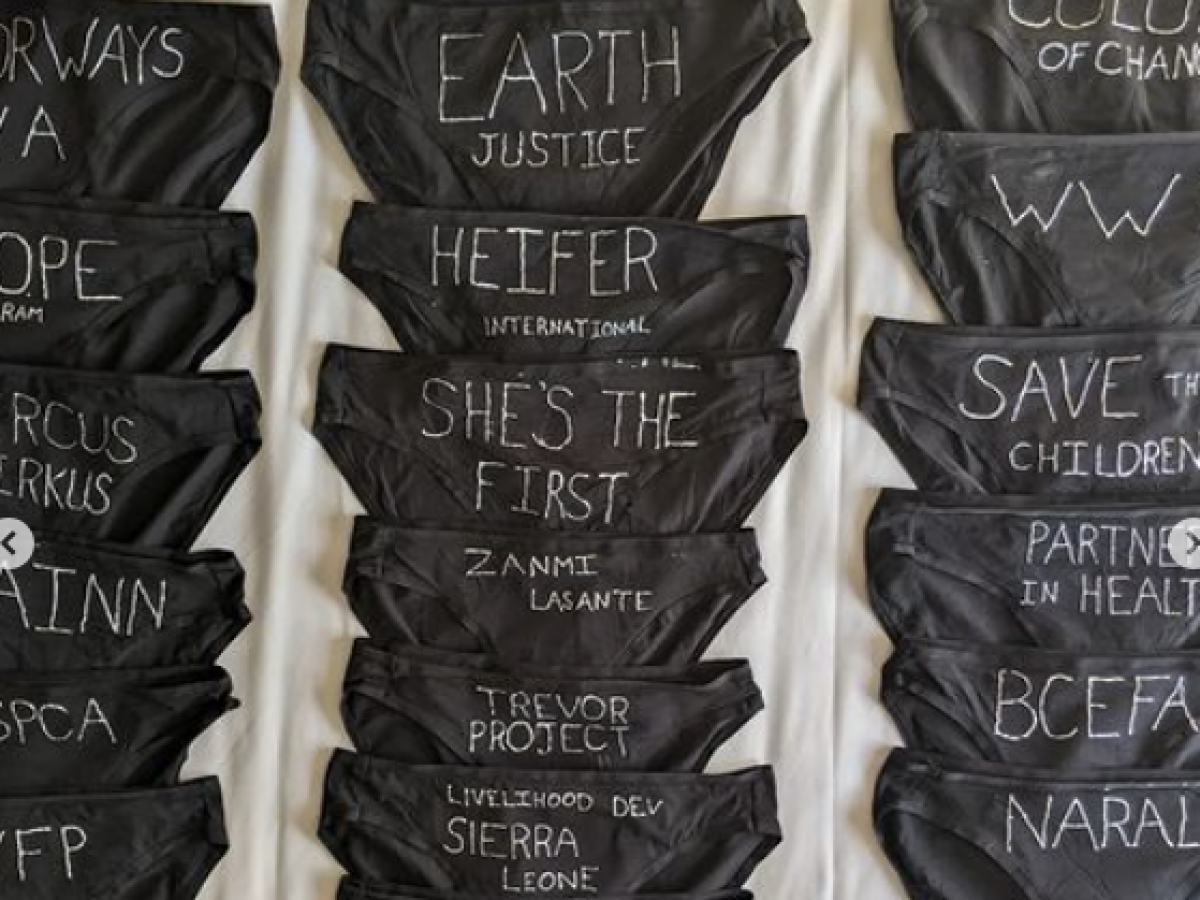 ORWAYS
A
OPE
RAM
RCUS
IRKUS
AINN
SPCA
FP
EARTH
JUSTICE
HEIFER
INTERNATIONAL
SHE'S THE
FIRST
ZANMI
LASANTE
TREVOR
PROJECT
LIVELIHOOD DEV
SIERRA
LEONE
COLO
OF CHAN
WW
SAVE TH
CHILDREN
PARTNE
IN HEALT
BCEFA
NARAL